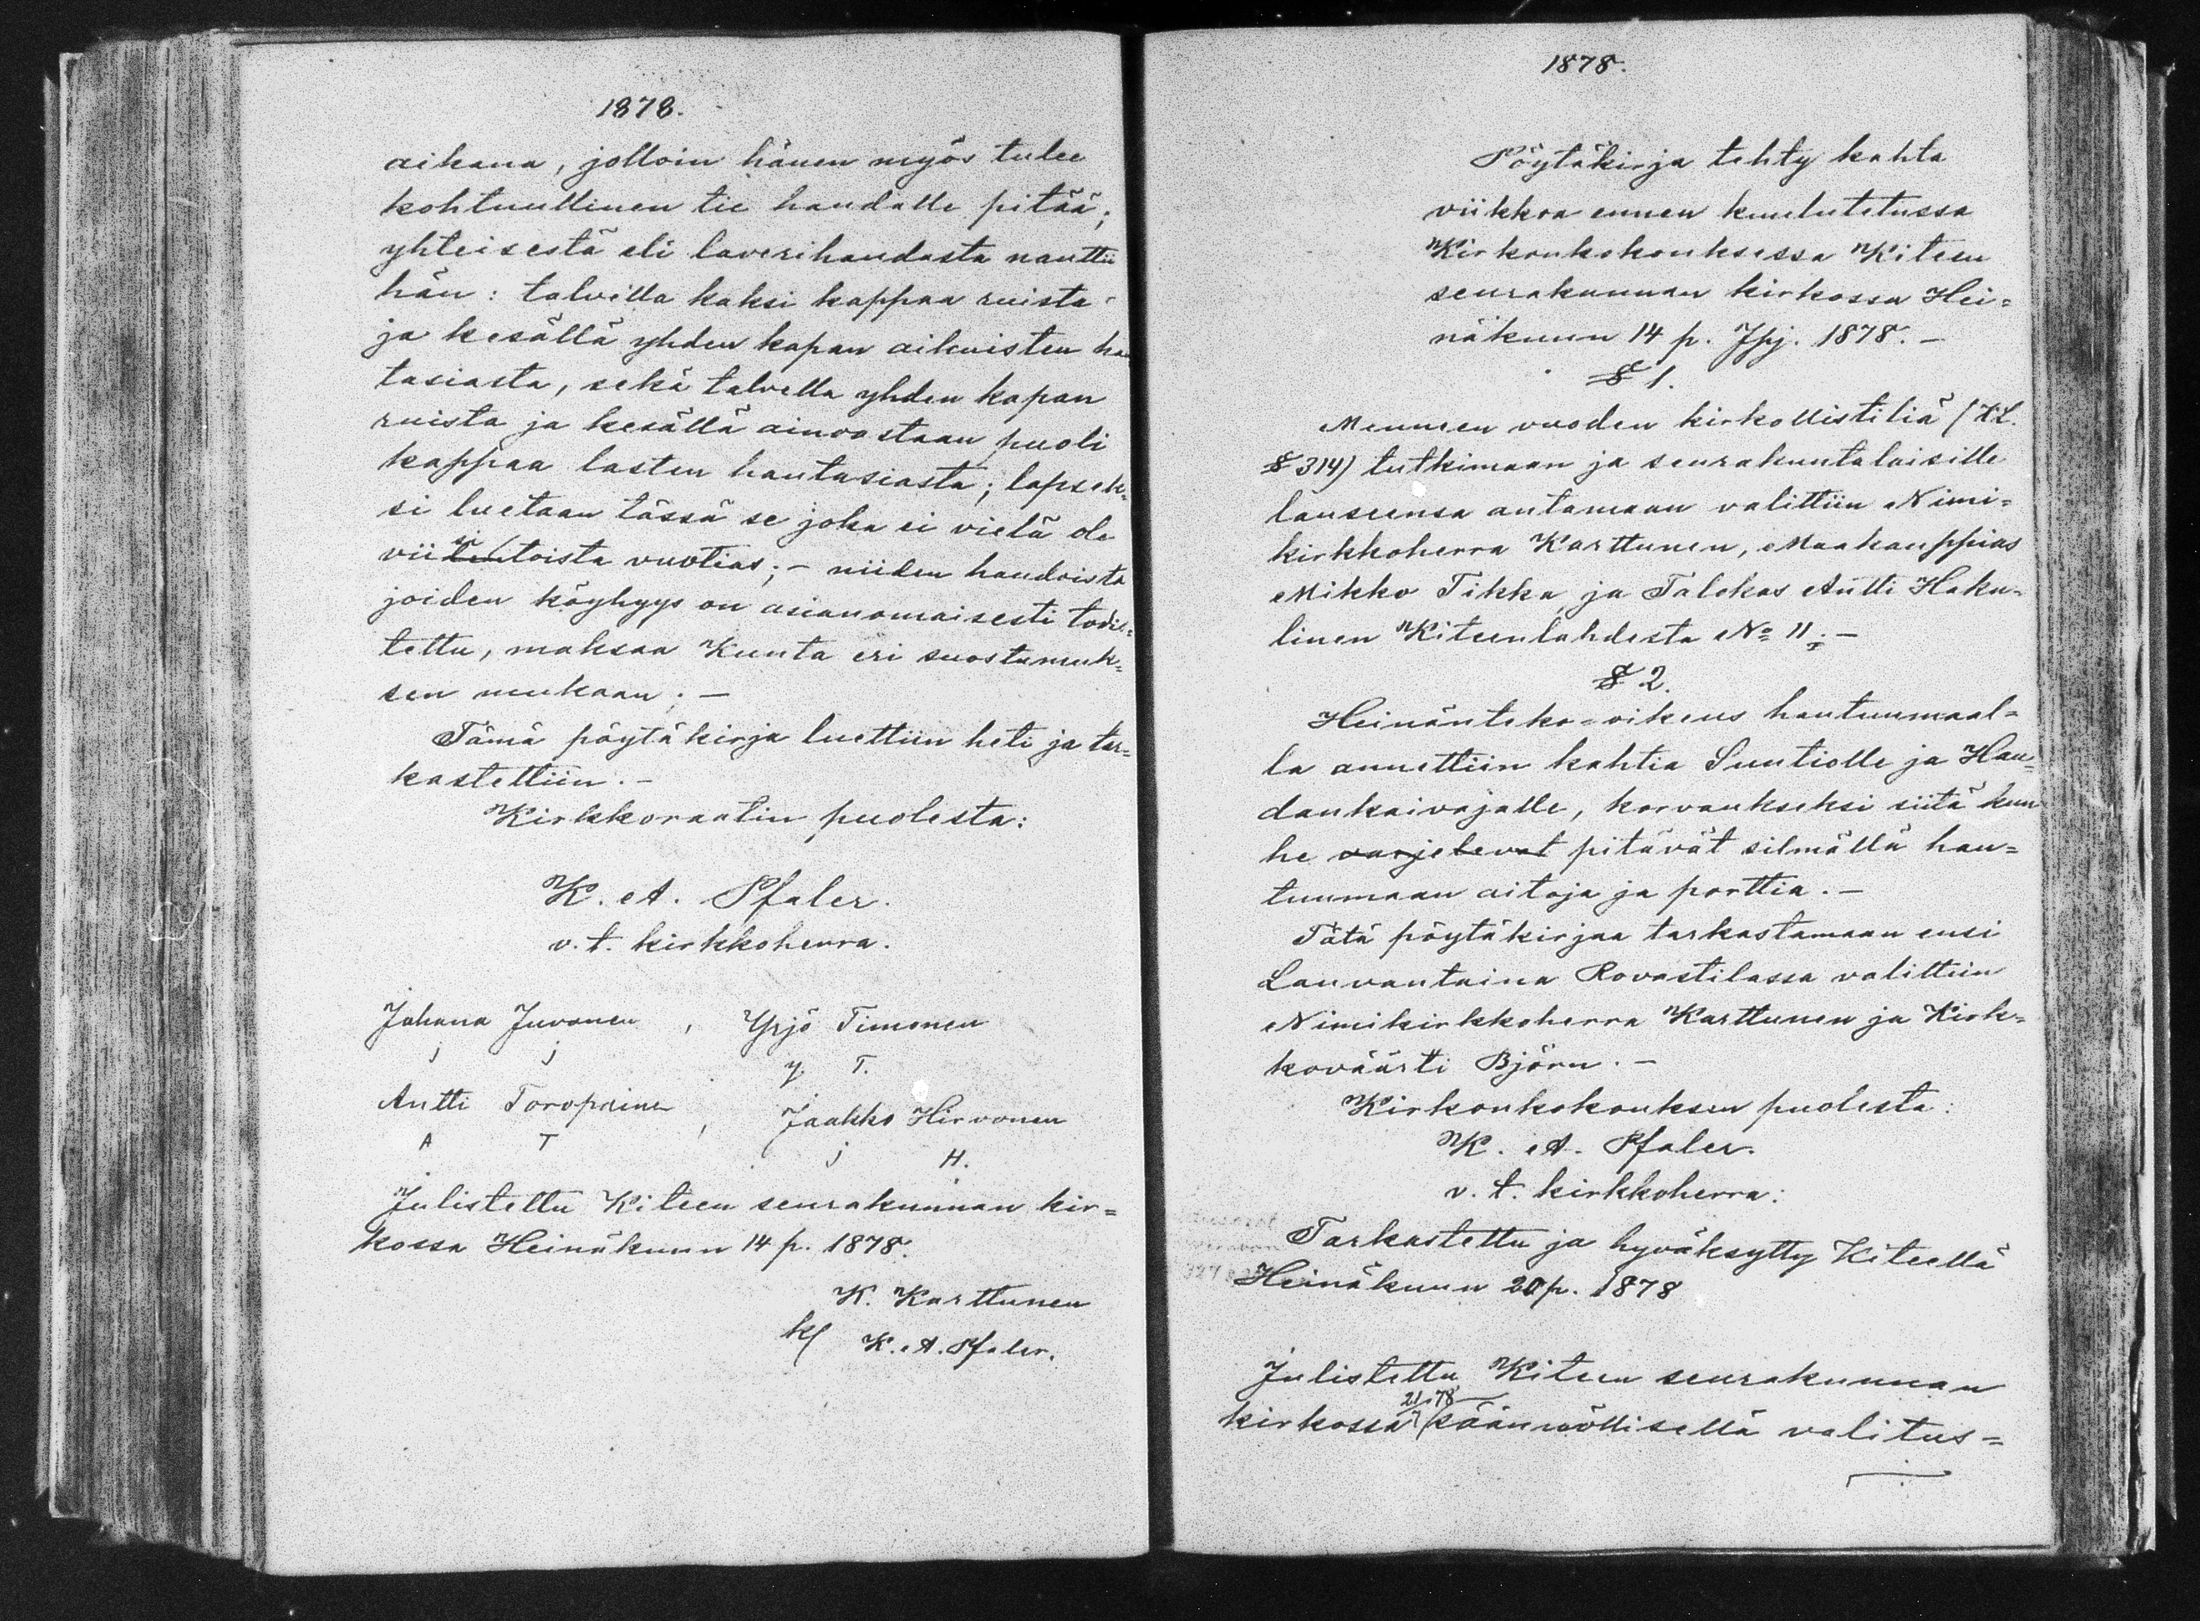 1878.
aikana, jolloin hänen myös tulee
kohtuullinen tie haudalle pitää;
yhteisestä eli laverihaudasta nauttii
hän: talvella kaksi kappaa ruista
ja kesällä yhden kapan aikuisten hau
tasiasta, sekä talvella yhden kapan
ruista ja kesällä ainoastaan puoli
kappaa lasten hautasiasta; lapsek=
si luetaan tässä se joka ei vielä ole
viitentoista vuotias; – niiden haudoista
joiden köyhyys on asianomaisesti todis=
tettu, maksaa Kunta eri suostumuk=
sen mukaan. –
Tämä pöytäkirja luettiin heti ja tar=
kastettiin. –
Kirkkoraatin puolesta:
K. A. Pfaler.
v. t. kirkkoherra.
Juhana Juvonen, Yrjö Timonen
J J Y. T.
Antti Toropainen, Jaakko Hirvonen
A T J H.
Julistettu Kiteen seurakunnan kir=
kossa Heinäkuun 14 p. 1878.
K. Karttunen
K. A. Pfaler.
1878.
Pöytäkirja tehty kahta
viikkoa ennen kuulutetussa
Kirkonkokouksessa Kiteen
seurakunnan kirkossa Hei=
näkuun 14 p. Jpj. 1878. –
§ 1.
Menneen vuoden kirkollistiliä (K.L.
§ 314) tutkimaan ja seurakuntalaisille
lauseensa antamaan valittiin Nimi=
kirkkoherra Karttunen, Maakauppias
Mikko Tikka ja Talokas Antti Haku=
linen Kiteenlahdesta No 11; –
§ 2.
Heinänteko-oikeus hautuumaal=
la annettiin kahtia Suntiolle ja Hau=
dankaivajalle, korvaukseksi siitä kun
he varjelevat pitävät silmällä hau=
tuumaan aitoja ja porttia. –
Tätä pöytäkirjaa tarkastamaan ensi
Lauvantaina Rovastilassa valittiin
Nimikirkkoherra Karttunen ja Kirk=
koväärti Björn. –
Kirkonkokouksen puolesta:
K. A. Pfaler.
v. t. kirkkoherra:
Tarkastettu ja hyväksytty Kiteellä
Heinäkuun 20 p. 1878
Julistettu Kiteen seurakunnan
kirkossa 21/7 78 säännöllisellä valitus=